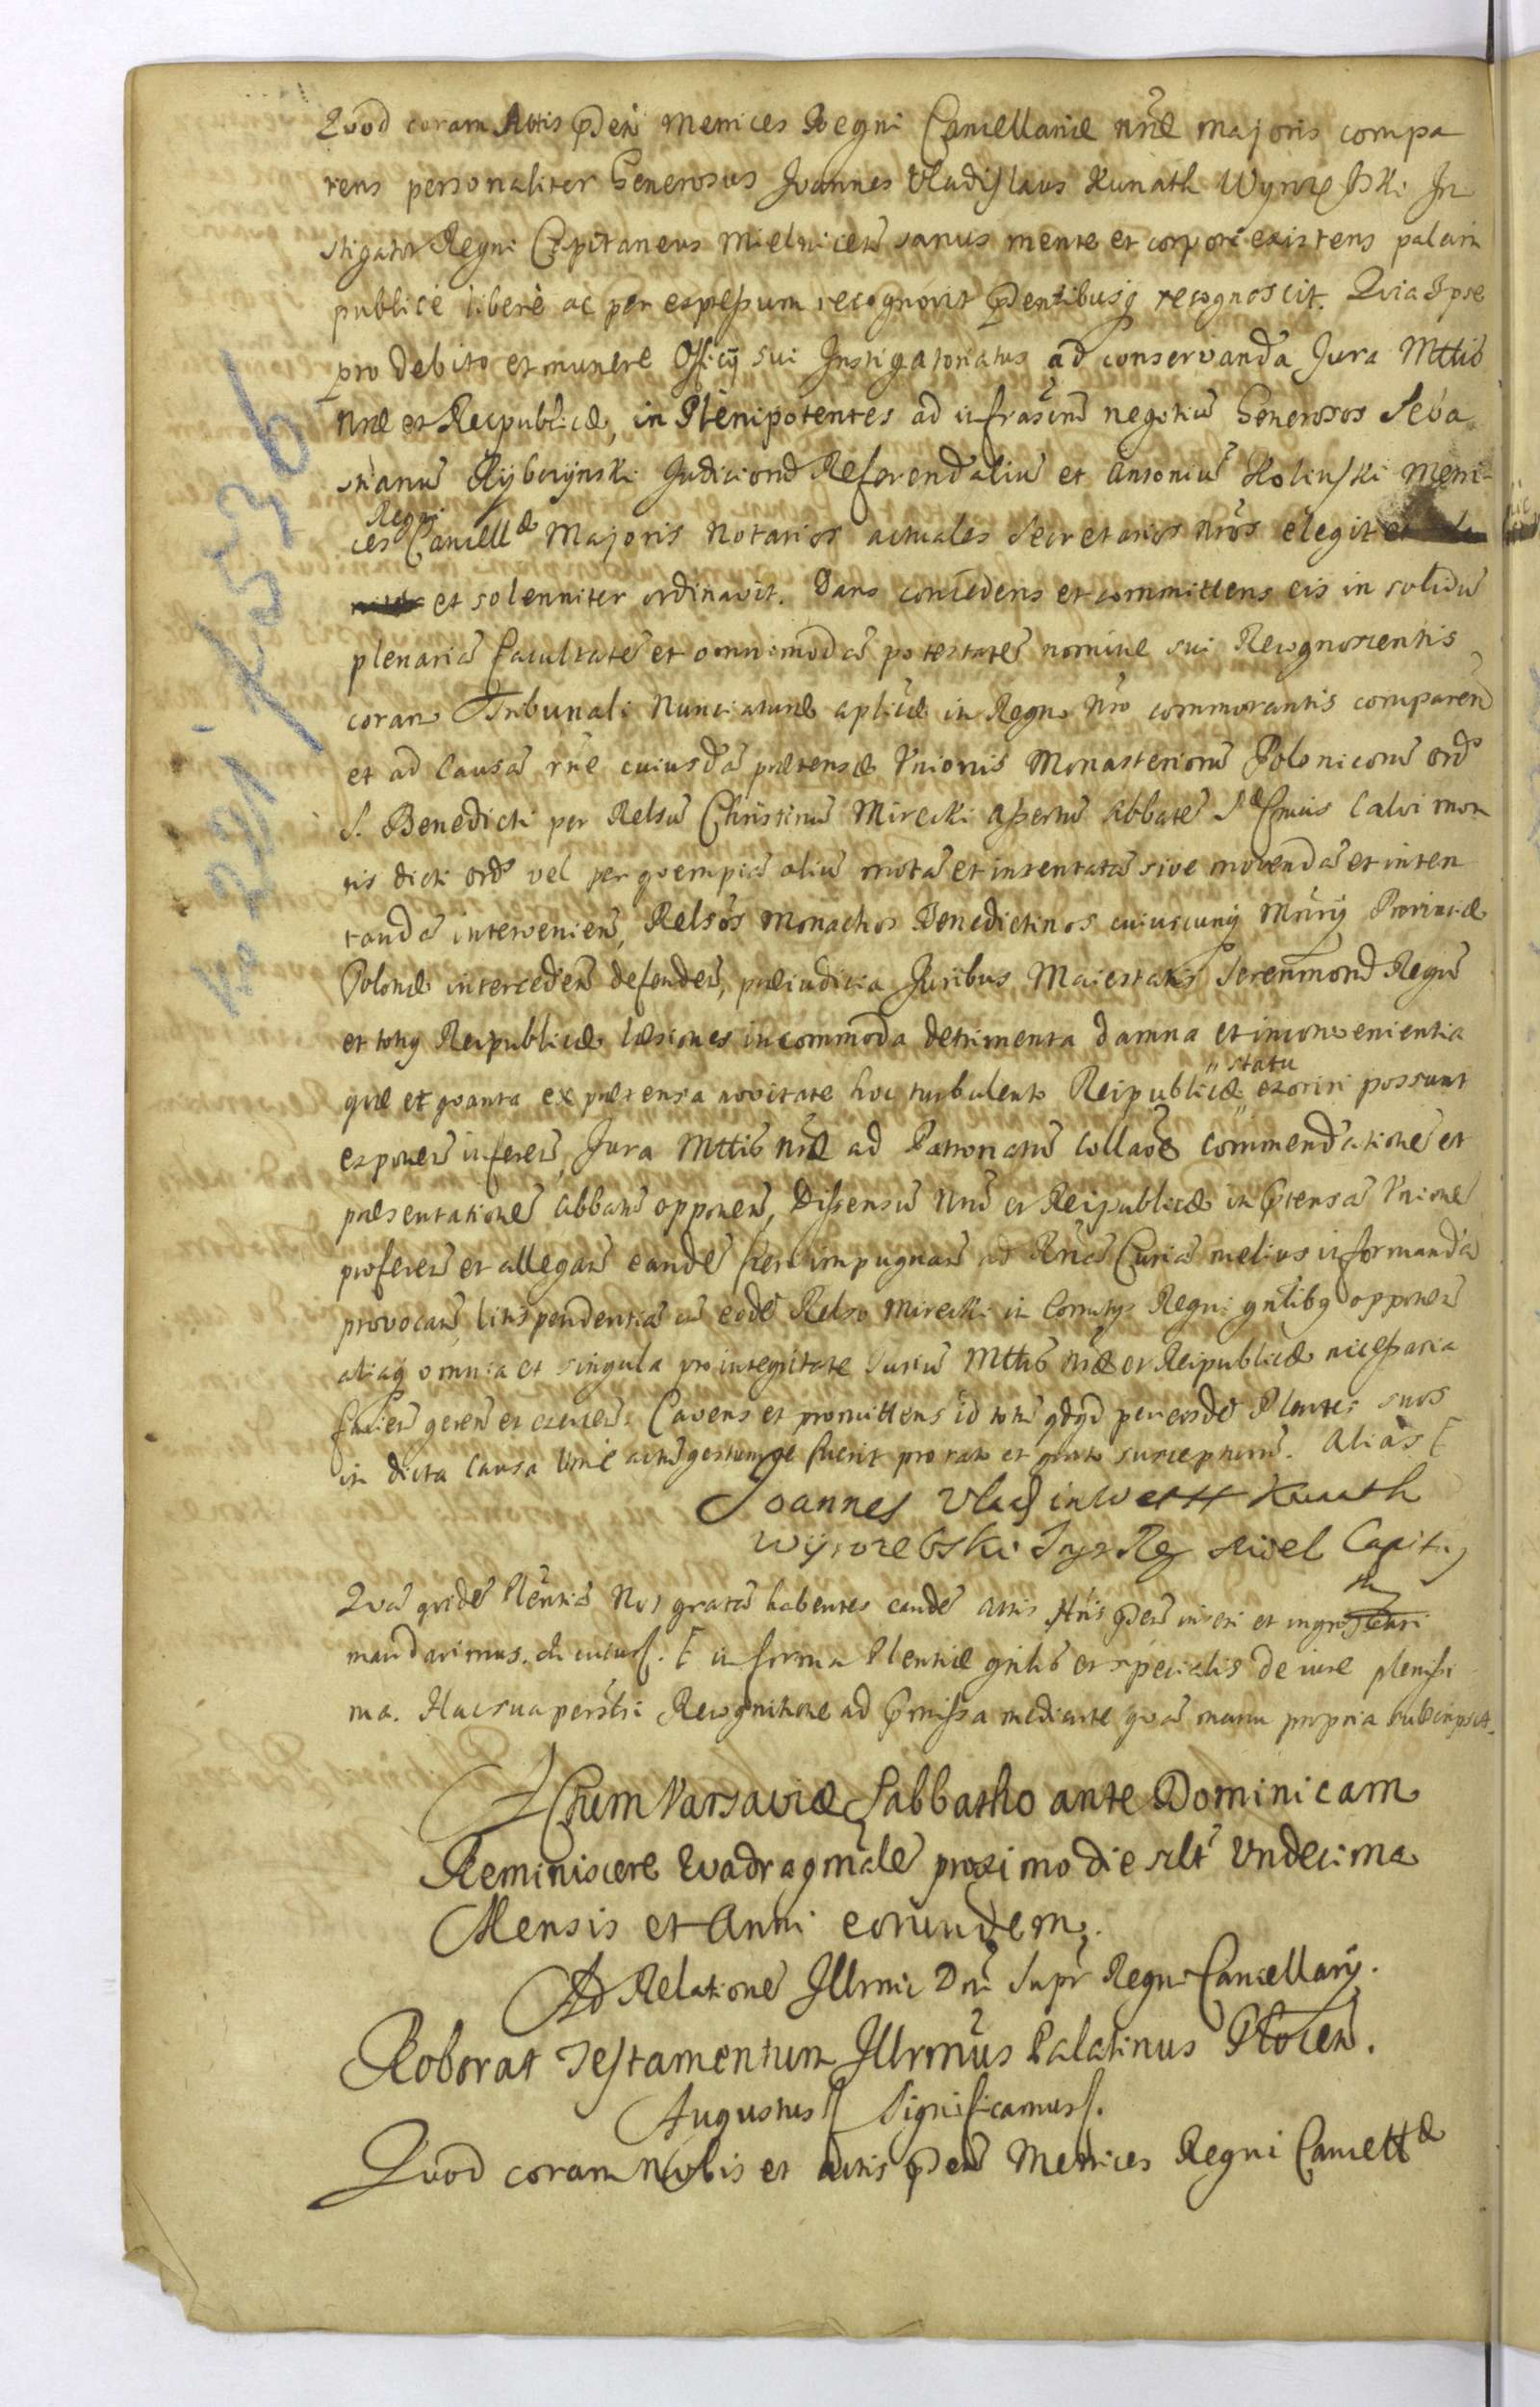 Quod coram Actis pñtibus Metrices Regni Cancellariæ nræ majoris compa
rens personaliter Generosus Joannes Vladislaus Kunath Wyrozębski In
stigator Regni Capitaneus Mielnicen̄ sanus mente et corpore existens palam
publicè liberè ac per expressum recognovit pñtibusq recognoscit. Quia Ipse
pro debito et munere Officij sui Instigatoriatus ad conservanda Jura Mttis
nræ et Reipublicæ, in Plenipotentes ad infrascrm̄ negotiū Generosos Seba
stianū Rybczynski Judiciorū Referendaliū et Antoniū Holinski Metri-
ces Regni Cancellæ Majoris Notarios actuales Secretarios nrōs elegit
et solenniter ordinavit. Dans concedens et committens eis in solidū
plenariā facultatē et omnimodā potestatē nomine sui Recognoscentis
coram Tribunali Nunciaturæ aplīcæ in Regno nrō commorantis comparend
et ad Causā rñe cuiusdā prætensæ Vnionis Monasteriorū Polonicorū ordˢ
S. Benedicti per Relsū Christinū Mirecki assertū Abbatē Sæ Crucis Calvi mon
tis dicti ordˢ vel per quempiā aliū motā et intentatā sive movendā et inten
tandā intervenien̄, Relsōs Monachos Benedictinos cuiuscunq Mrij Provinciæ
Polonæ interceden̄ defenden̄, præiudicia Juribus Maiestatis Serenmorū Regū
et totiq Reipublicæ læsiones incommoda detrimenta damna et inconvenientia
quæ et quanta ex prætensa novitate hoc turbulento Reipublicæ statu exoriri possunt
exponen̄ inferen̄, Jura Mttis nræ ad Patronatū collaōē commendationē et
præsentationē Abbatū opponen̄, Dissensū nrū et Reipublicæ in prætensā Vnionē
proferen̄ et allegan̄ eandē impugnan̄ ad Rñā Curiā melius informandā
provocan̄, litis pendentiā cū eodē Relso Mirecki in Comitijs Regni gnlibq opponen̄
aliaq omnia et singula pro integritate Juriū Mttis nræ et Reipublicæ necessaria
facien̄ geren̄ et exercen̄. Cavens et promittens id totū qdqd per eosdē Plentes suos
in dicta Causa actū gestumqe fuerit pro rato et grato suscepturū. Aliàs E
Joannes Vladislaus Kunath
Wyrozebski Reg Miel Capit
Quā quidē Plēntiā Nos gratā habentes eandē Actis pñtibus inseri et ingrossari
mandavimus. E in forma Plentiæ gnlis et specialis de iure plenissi
ma. Hac sua perstˡi Recognitione ad præmissa mediante quā manu propria subscripsit.
Actum Varsaviæ Sabbatho ante Dominicam
Reminiscere Quadragmālē proximo die sclt Vndecima
Mensis et Anni eorundem.
Ad Relationē Illrmi Dnī Supr Regni Cancellarij.
Roborat Testamentum Illrmus Palatinus Plocen̄.
Augustus Significamus.
Quod coram Nobis et Actis pñtibus Metrices Regni Cancellæ
No 221/1536